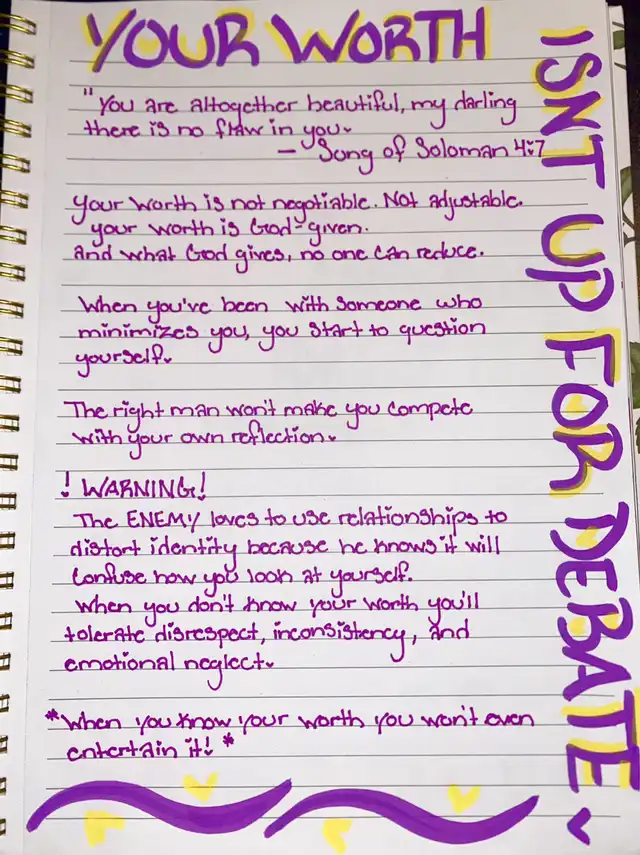 YOUR WORTH
ISNT UP FOR DEBATE
"You are altogether beautiful, my darling
there is no flaw in you.
— Song of Soloman 4:7
Your worth is not negotiable. Not adjustable.
your worth is God-given.
and what God gives, no one can reduce.
When you've been with someone who
minimizes you, you start to question
yourself.
The right man won't make you compete
with your own reflection.
! WARNING!
The ENEMY loves to use relationships to
distort identity because he knows it will
confuse how you look at yourself.
When you don't know your worth you'll
tolerate disrespect, inconsistency, and
emotional neglect.
*When you know your worth you won't even
entertain it! *